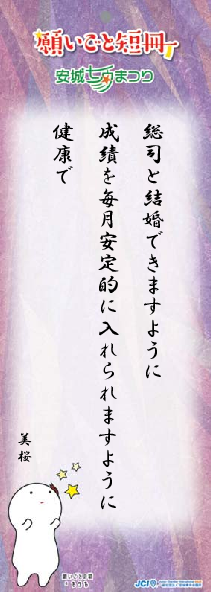 願いごと短冊
安城七夕まつり
総司と結婚できますように
成績を毎月安定的に入れられますように
健康で
美桜
願いごと短冊
JCI